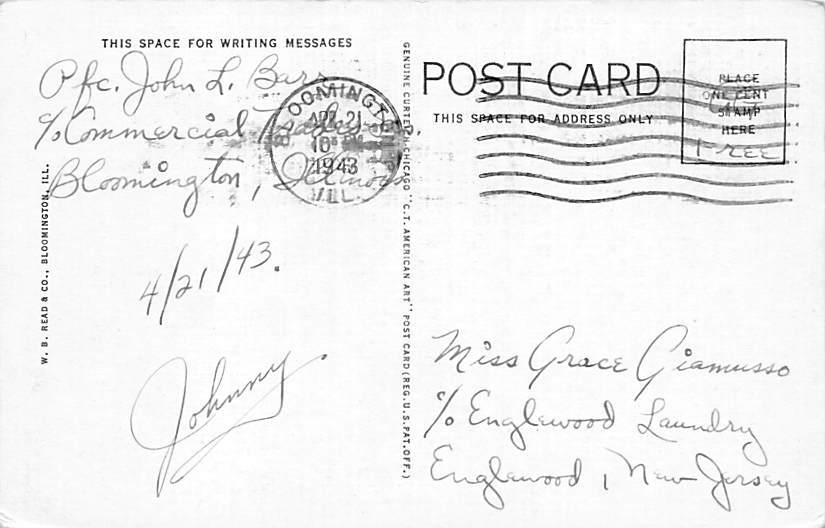 THIS SPACE FOR WRITING MESSAGES
Pfc. John L. Barr
℅ Commercial
Bloomington, Illinois
4/21/43.
Johnny
BLOOMINGTON
APR 21
10
1943
ILL.
W. B. READ & CO., BLOOMINGTON, ILL.
GENUINE CURTEICH-CHICAGO "C.T. AMERICAN ART" POST CARD (REG. U.S. PAT. OFF.)
POST CARD
THIS SPACE FOR ADDRESS ONLY
PLACE
ONE CENT
STAMP
HERE
Free
Miss Grace Giamusso
℅ Englewood Laundry
Englewood, New Jersey